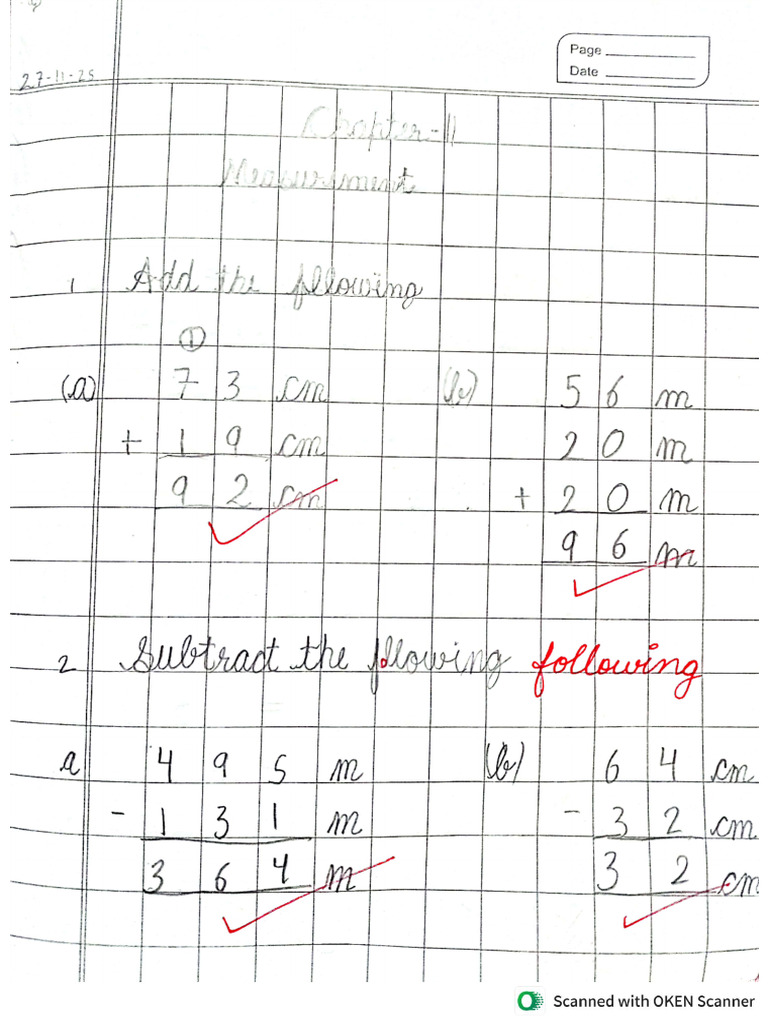 Page
Date
27-11-25
Chapter-11
Measurement
1 Add the fllowing
①
(a) 73 cm (b) 56 m
+ 19 cm 20 m
92 cm + 20 m
96 m
2 Subtract the fllowing following
a 495 m (b) 64 cm
- 131 m - 32 cm
364 m 32 cm
Scanned with OKEN Scanner